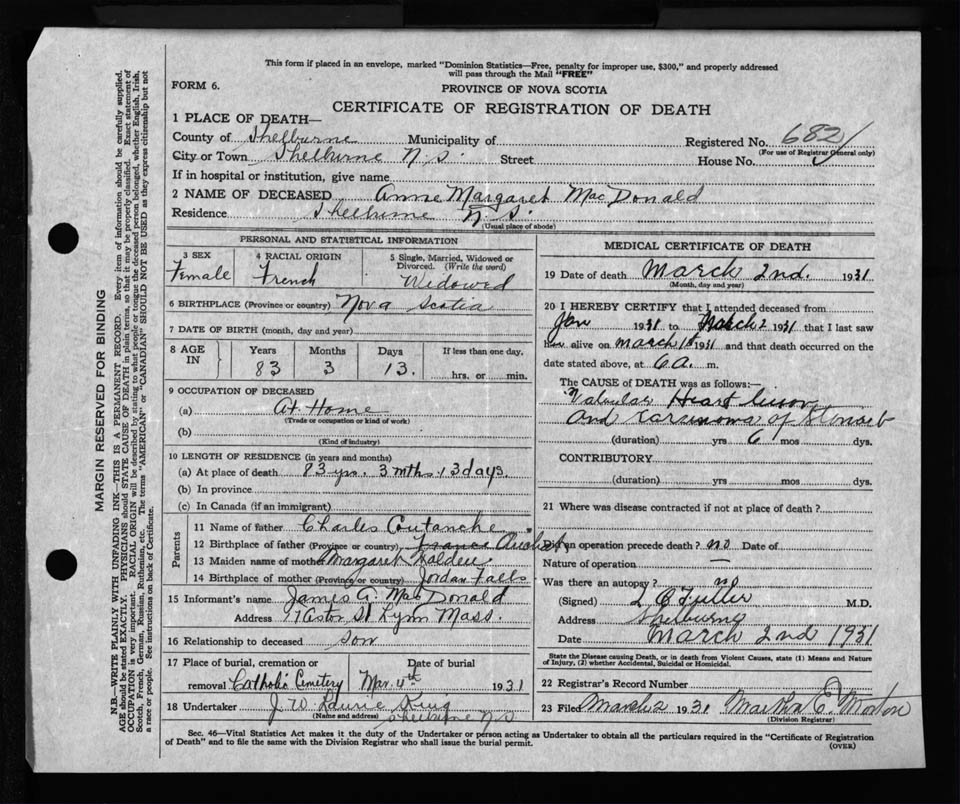 This form if placed in an envelope, marked "Dominion Statistics—Free, penalty for improper use, $300," and properly addressed
will pass through the Mail "FREE"
FORM 6.
PROVINCE OF NOVA SCOTIA
CERTIFICATE OF REGISTRATION OF DEATH
1 PLACE OF DEATH—
County of Shelburne Municipality of Registered No. 682
(For use of Registrar General only)
City or Town Shelburne N.S. Street House No.
If in hospital or institution, give name
2 NAME OF DECEASED Anne Margaret MacDonald
Residence Shelburne N.S.
(Usual place of abode)
PERSONAL AND STATISTICAL INFORMATION
3 SEX 4 RACIAL ORIGIN 5 Single, Married, Widowed or
Divorced. (Write the word)
Female French Widowed
6 BIRTHPLACE (Province or country) Nova Scotia
7 DATE OF BIRTH (month, day and year)
8 AGE IN Years Months Days If less than one day,
83 3 13. hrs. or min.
9 OCCUPATION OF DECEASED
(a) At Home
(Trade or occupation or kind of work)
(b)
(Kind of industry)
10 LENGTH OF RESIDENCE (in years and months)
(a) At place of death 83 yrs. 3 mths. 13 days.
(b) In province
(c) In Canada (if an immigrant)
Parents
11 Name of father Charles Coutanche
12 Birthplace of father (Province or country) France
13 Maiden name of mother Margaret
14 Birthplace of mother (Province or country) Jordan Falls
15 Informant's name James A. MacDonald
Address St Lynn Mass.
16 Relationship to deceased son
17 Place of burial, cremation or Date of burial
removal Catholic Cemetery Mar. 4th 1931
18 Undertaker J. W. King
(Name and address) Shelburne N.S
MEDICAL CERTIFICATE OF DEATH
19 Date of death March 2nd. 1931
(Month, day and year)
20 I HEREBY CERTIFY that I attended deceased from
Jan 1931 to March 2 1931 that I last saw
her alive on March 1st 1931 and that death occurred on the
date stated above, at 6 A. m.
The CAUSE OF DEATH was as follows:
Valvular Heart lesion
and Carcinoma of Stomach
(duration) yrs 6 mos dys.
CONTRIBUTORY
(duration) yrs. mos. dys.
21 Where was disease contracted if not at place of death?
Did an operation precede death? no Date of
Nature of operation —
Was there an autopsy? no
(Signed) L C Fuller M.D.
Address Shelburne
Date March 2nd 1931
State the Disease causing Death, or in death from Violent Causes, state (1) Means and Nature
of Injury, (2) whether Accidental, Suicidal or Homicidal.
22 Registrar's Record Number
23 Filed March 2 1931 Martha E. Morton
(Division Registrar)
Sec. 46—Vital Statistics Act makes it the duty of the Undertaker or person acting as Undertaker to obtain all the particulars required in the "Certificate of Registration
of Death" and to file the same with the Division Registrar who shall issue the burial permit.
(OVER)
MARGIN RESERVED FOR BINDING
N.B.—WRITE PLAINLY WITH UNFADING INK—THIS IS A PERMANENT RECORD. Every item of information should be carefully supplied.
AGE should be stated EXACTLY. PHYSICIANS should STATE CAUSE OF DEATH in plain terms, so that it may be properly classified. Exact statement of
OCCUPATION is very important. RACIAL ORIGIN will be described by stating to what people or tongue the deceased person belonged, whether English, Irish,
Scotch, French, German, Russian, Ruthenian, etc. The terms "AMERICAN" or "CANADIAN" SHOULD NOT BE USED as they express citizenship but not
a race or people. See instructions on back of Certificate.